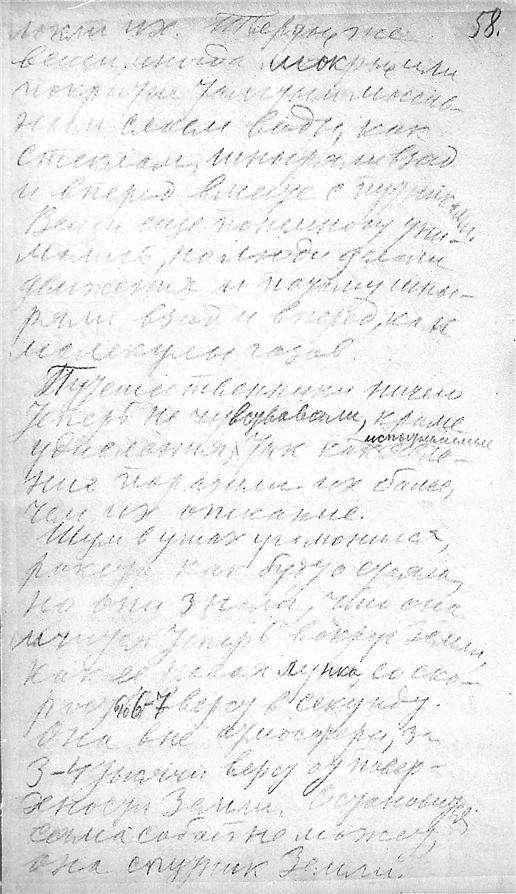 58.
их. Твердые же
вещи, иногда мокрые или
покрытые тонким
слоем воды, как
стеклом, шныряли взад
и вперед вместе с путниками.
Вещи еще понемногу уни-
мались, но люди делали
движения и потому шны-
ряли взад и вперед, как
молекулы газов.
Путешественники ничего
теперь не чувствовали, кроме
удивления, так как испытанные
поразили их более,
чем их описание.
Шум в ушах угомонился,
ракета как будто стояла,
но они знали, что она
мчится теперь вокруг Земли,
как ее новая лунка, со ско-
ростью 6-7 верст в секунду.
Она вне атмосферы, за
3-4 тысячи верст от повер-
хности Земли. Остановиться
сама собой не может,
она спутник Земли.